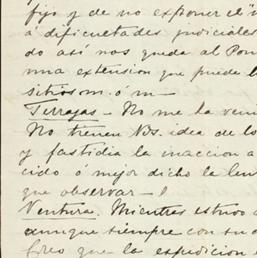 fijo y de no exponer el
á dificultades judiciales
do así nos queda al Pon
una extension que puede l
sitios m. ó m—
Terrajas — No me la ven
No tienen Vds. idea de lo
y fastidia la inaccion a
cido ó mejor dicho la len
que observar—
Ventura. Mientras estuvo
aunque siempre con su d
creo que la espedicion